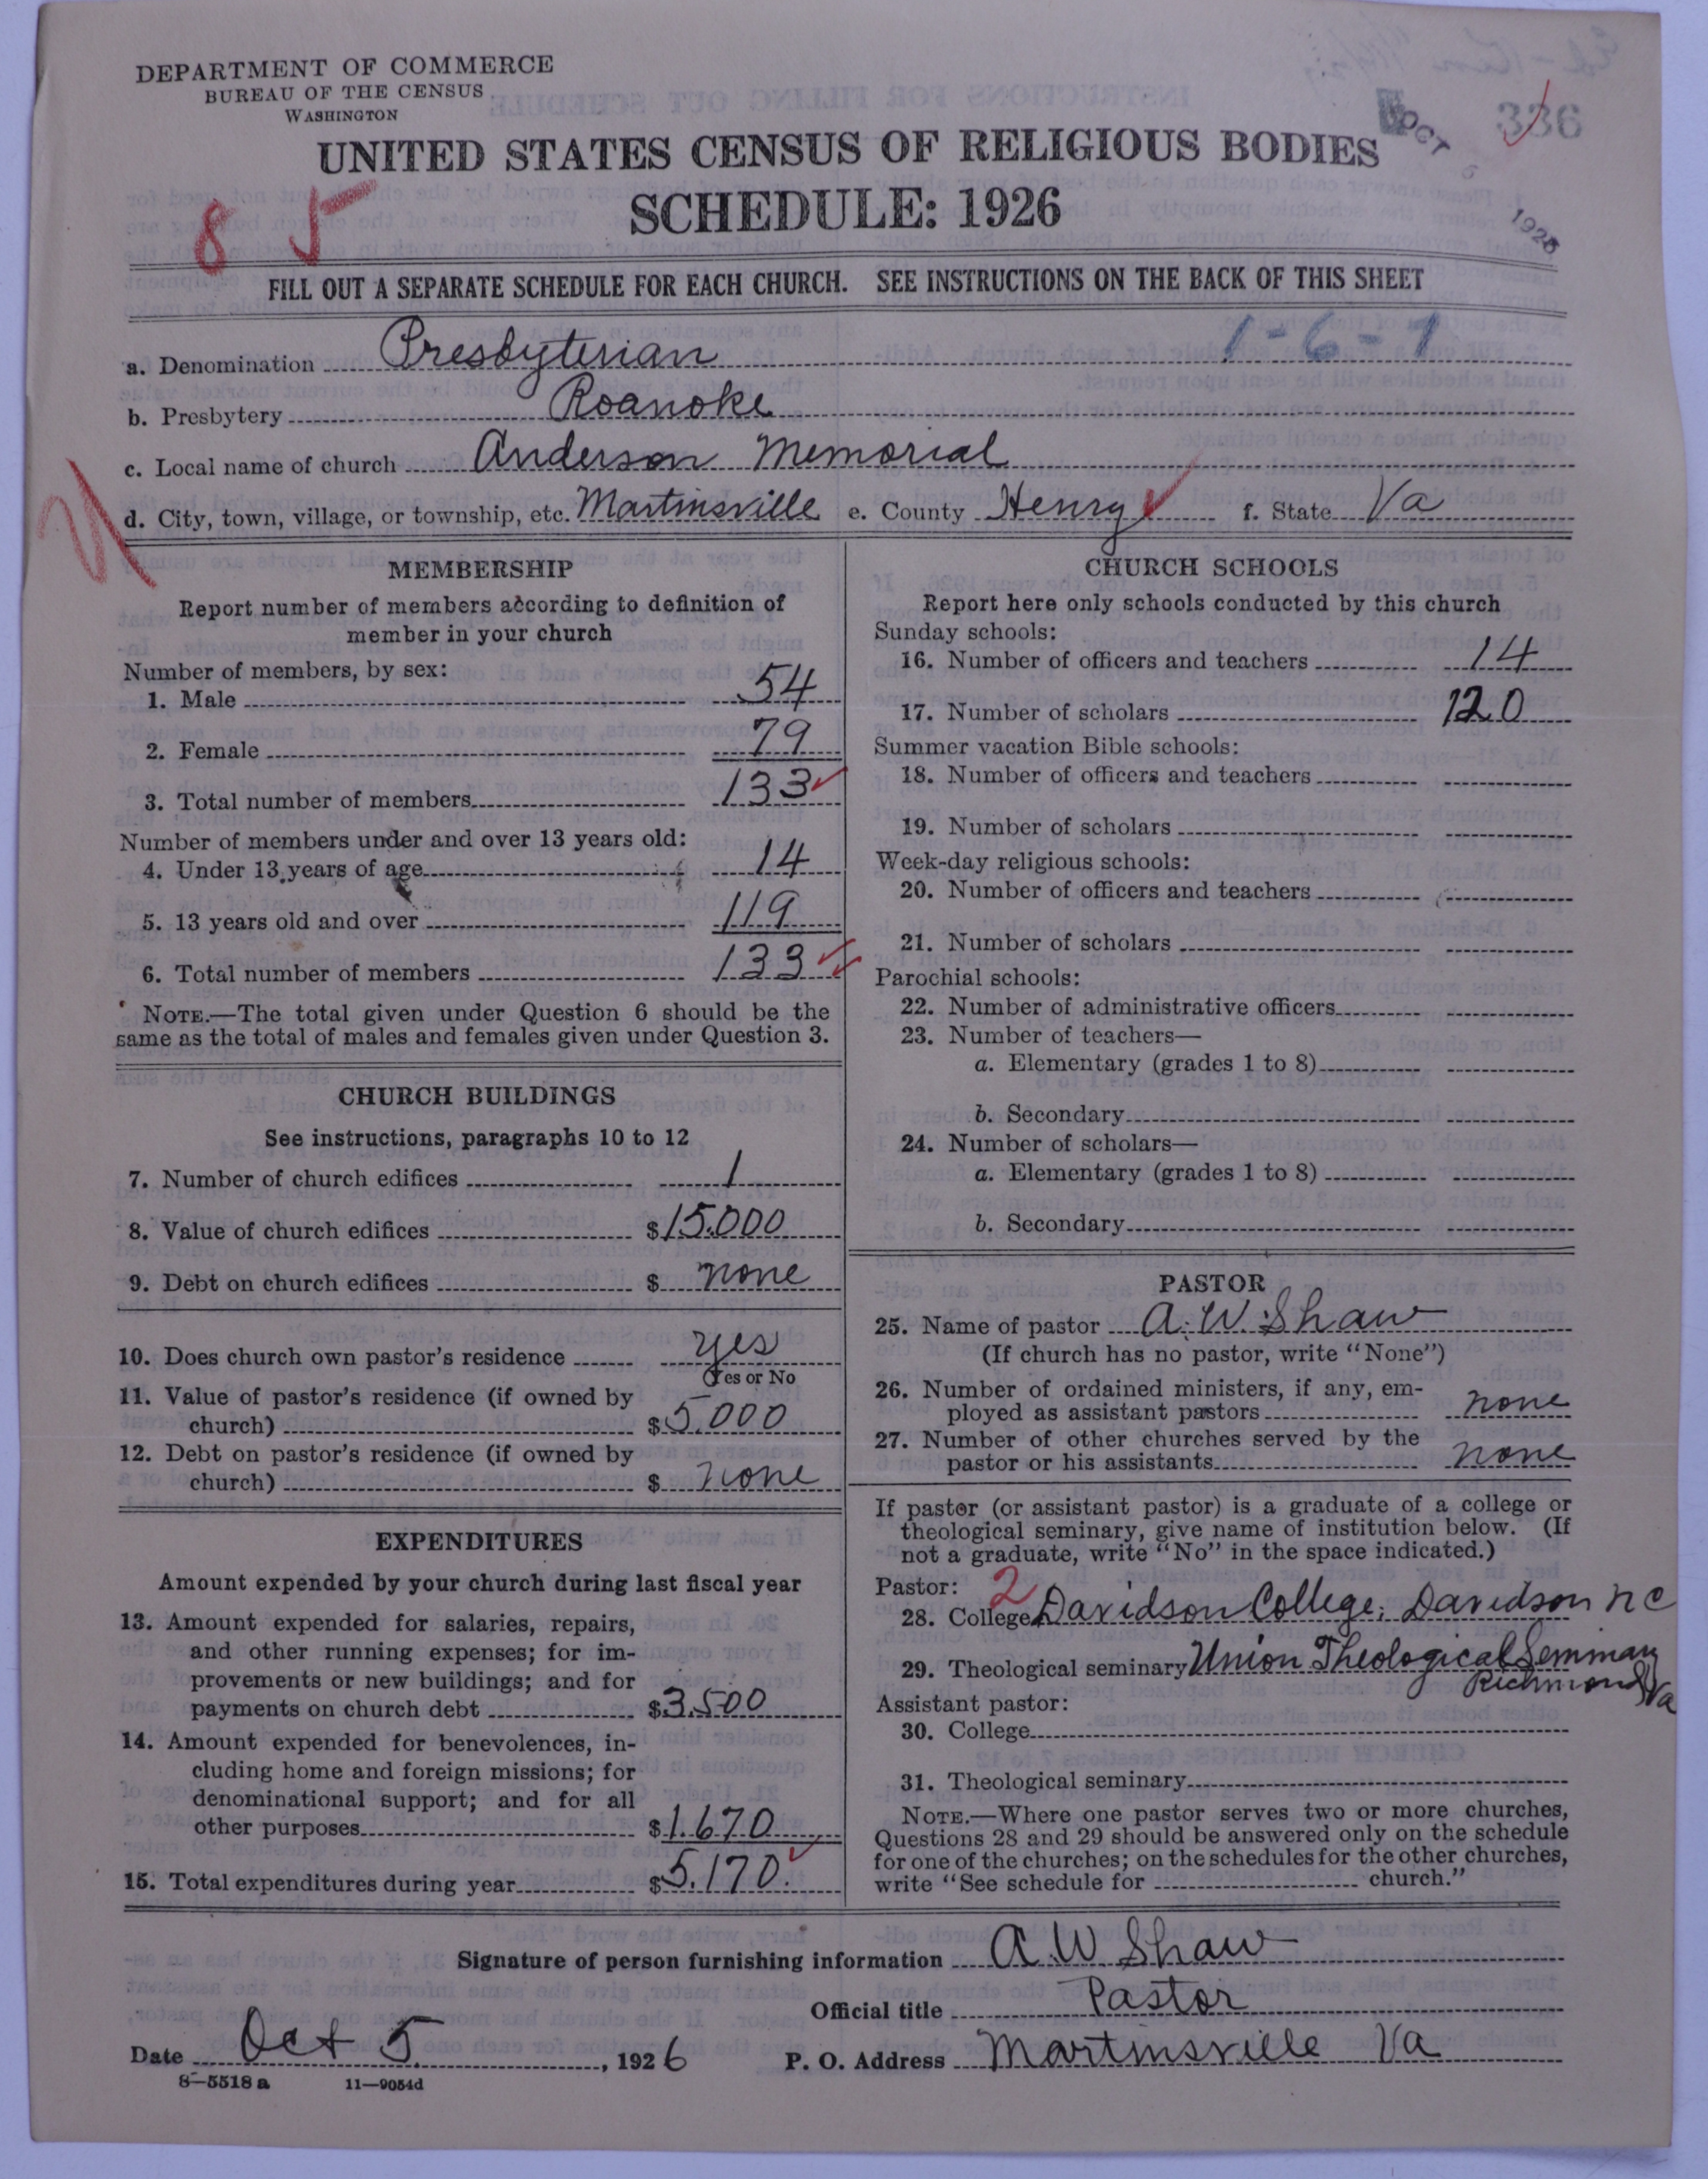 DEPARTMENT OF COMMERCE
BUREAU OF THE CENSUS
WASHINGTON
336
OCT 5 1926
UNITED STATES CENSUS OF RELIGIOUS BODIES
SCHEDULE: 1926
8 5
FILL OUT A SEPARATE SCHEDULE FOR EACH CHURCH. SEE INSTRUCTIONS ON THE BACK OF THIS SHEET
1-6-1
a. Denomination Presbyterian
b. Presbytery Roanoke
c. Local name of church Anderson Memorial
d. City, town, village, or township, etc. Martinsville e. County Henry f. State Va
MEMBERSHIP
Report number of members according to definition of
member in your church
Number of members, by sex:
1. Male 54
2. Female 79
3. Total number of members 133
Number of members under and over 13 years old:
4. Under 13 years of age 14
5. 13 years old and over 119
6. Total number of members 133
NOTE.—The total given under Question 6 should be the
same as the total of males and females given under Question 3.
CHURCH BUILDINGS
See instructions, paragraphs 10 to 12
7. Number of church edifices 1
8. Value of church edifices $15.000
9. Debt on church edifices $ none
10. Does church own pastor's residence yes
Yes or No
11. Value of pastor's residence (if owned by
church) $5.000
12. Debt on pastor's residence (if owned by
church) $ none
EXPENDITURES
Amount expended by your church during last fiscal year
13. Amount expended for salaries, repairs,
and other running expenses; for im-
provements or new buildings; and for
payments on church debt $3.500
14. Amount expended for benevolences, in-
cluding home and foreign missions; for
denominational support; and for all
other purposes $1.670
15. Total expenditures during year $5.170.
CHURCH SCHOOLS
Report here only schools conducted by this church
Sunday schools:
16. Number of officers and teachers 14
17. Number of scholars 120
Summer vacation Bible schools:
18. Number of officers and teachers
19. Number of scholars
Week-day religious schools:
20. Number of officers and teachers
21. Number of scholars
Parochial schools:
22. Number of administrative officers
23. Number of teachers—
a. Elementary (grades 1 to 8)
b. Secondary
24. Number of scholars—
a. Elementary (grades 1 to 8)
b. Secondary
PASTOR
25. Name of pastor A. W. Shaw
(If church has no pastor, write "None")
26. Number of ordained ministers, if any, em-
ployed as assistant pastors none
27. Number of other churches served by the
pastor or his assistants none
If pastor (or assistant pastor) is a graduate of a college or
theological seminary, give name of institution below. (If
not a graduate, write "No" in the space indicated.)
Pastor: 2
28. College Davidson College, Davidson NC
29. Theological seminary Union Theological Seminary
Richmond Va
Assistant pastor:
30. College
31. Theological seminary
NOTE.—Where one pastor serves two or more churches,
Questions 28 and 29 should be answered only on the schedule
for one of the churches; on the schedules for the other churches,
write "See schedule for church."
Signature of person furnishing information A. W. Shaw
Official title Pastor
Date Oct 5, 1926 P. O. Address Martinsville Va
8—5518 a 11—9054d